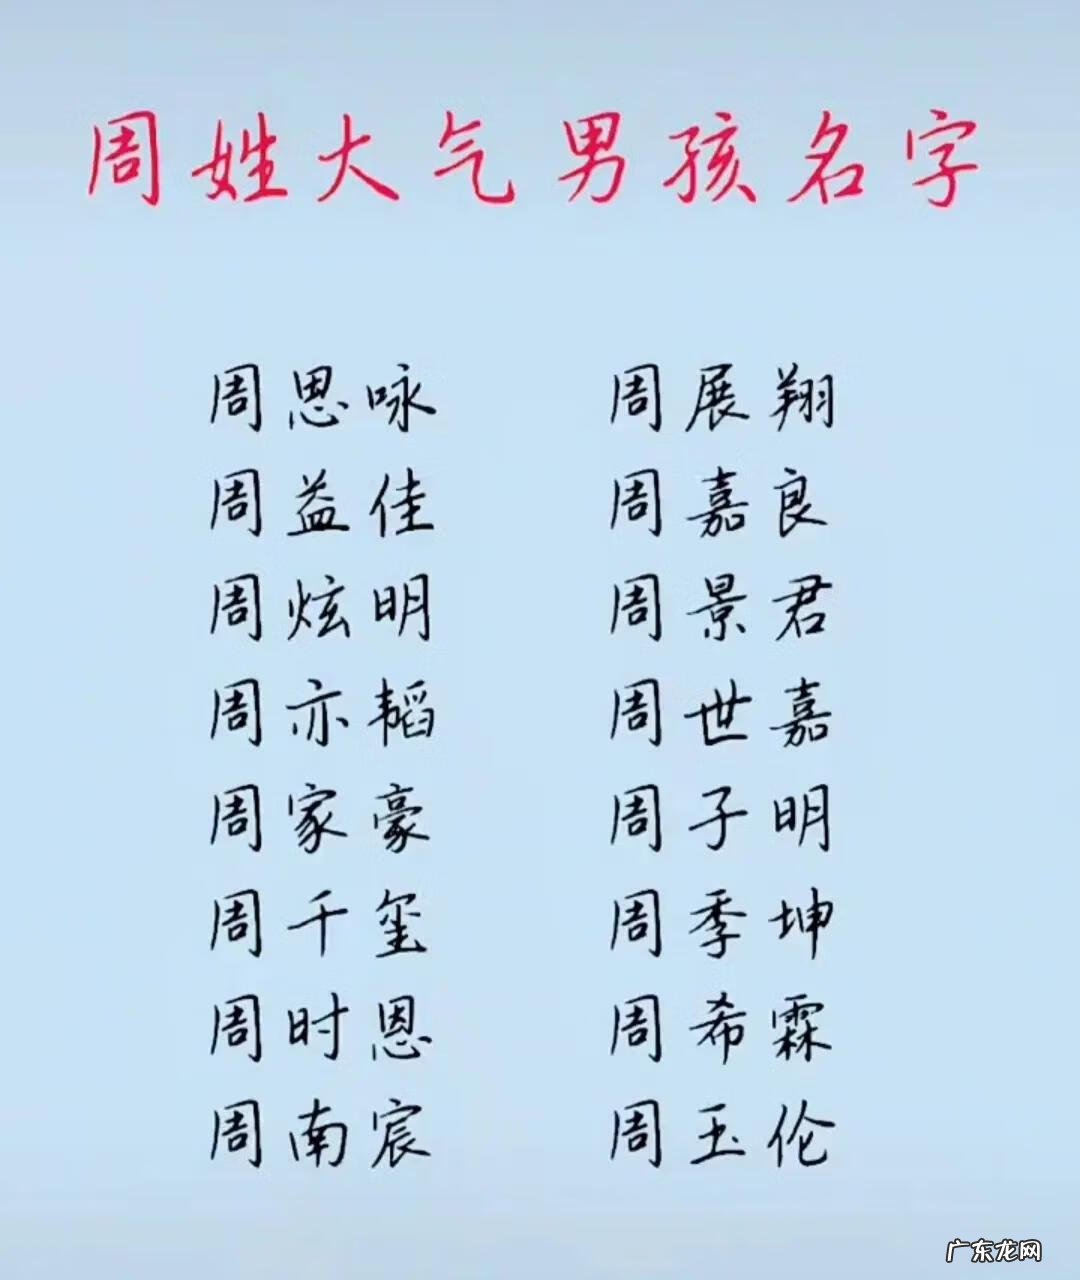 周姓大气男孩名字
周思咏 周展翔
周益佳 周嘉良
周炫明 周景君
周亦韬 周世嘉
周家豪 周子明
周千玺 周季坤
周时恩 周希霖
周南宸 周玉伦
广东龙网